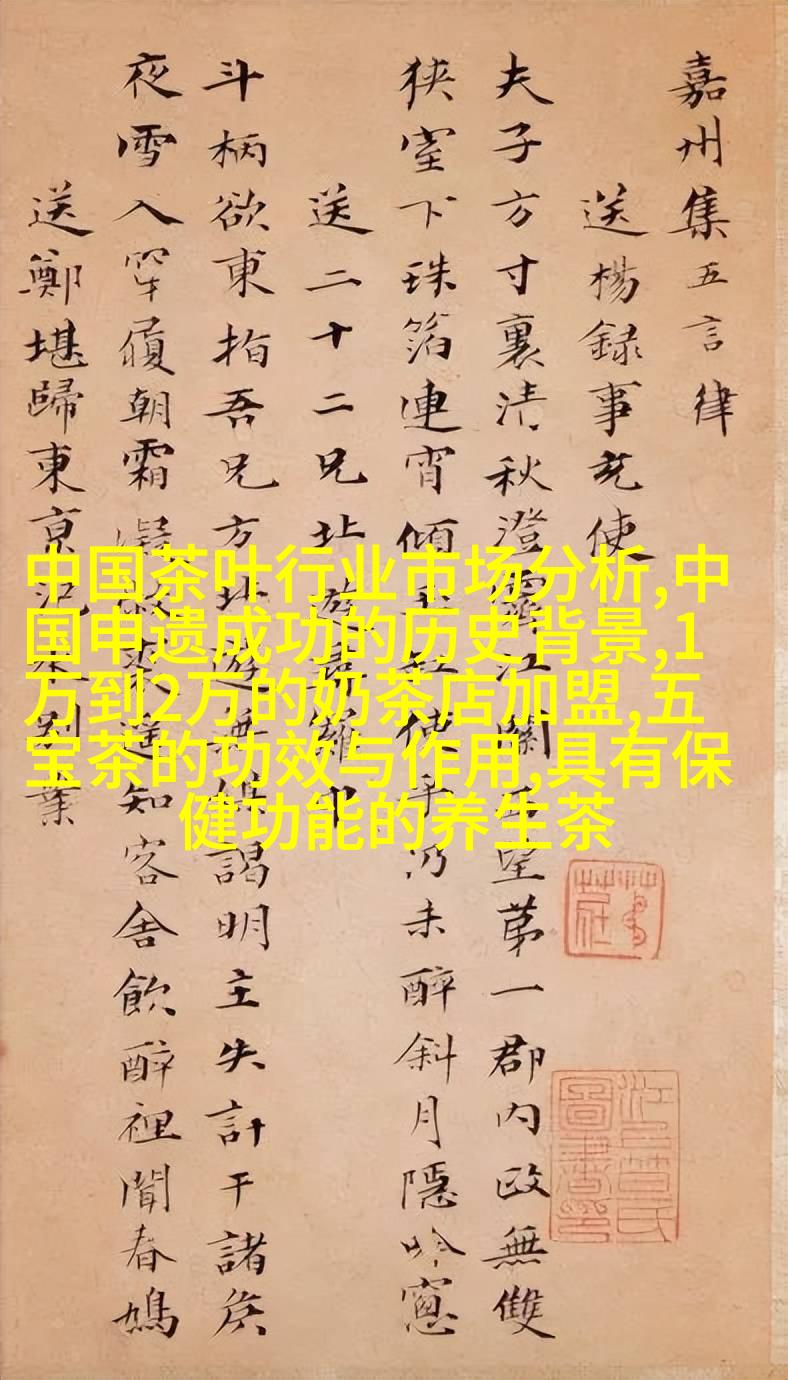 嘉州集五言律
送楊録事充使
夫子方寸裏清秋澄霽江關西望第一郡内政無雙
狹室下珠箔連宵傾玉缸使乎仍未醉斜月隱吟窻
送二十二兄北遊尋羅中
斗柄欲東指吾兄方北遊無媒謁明主失計干諸侯
夜雪入穿履朝霜凝敝裘遥知客舍飲醉裡聞春鳩
送鄭堪歸東京汜水別業
中国茶叶行业市场分析,中
国申遗成功的历史背景,1
万到2万的奶茶店加盟,五
宝茶的功效与作用,具有保
健功能的养生茶